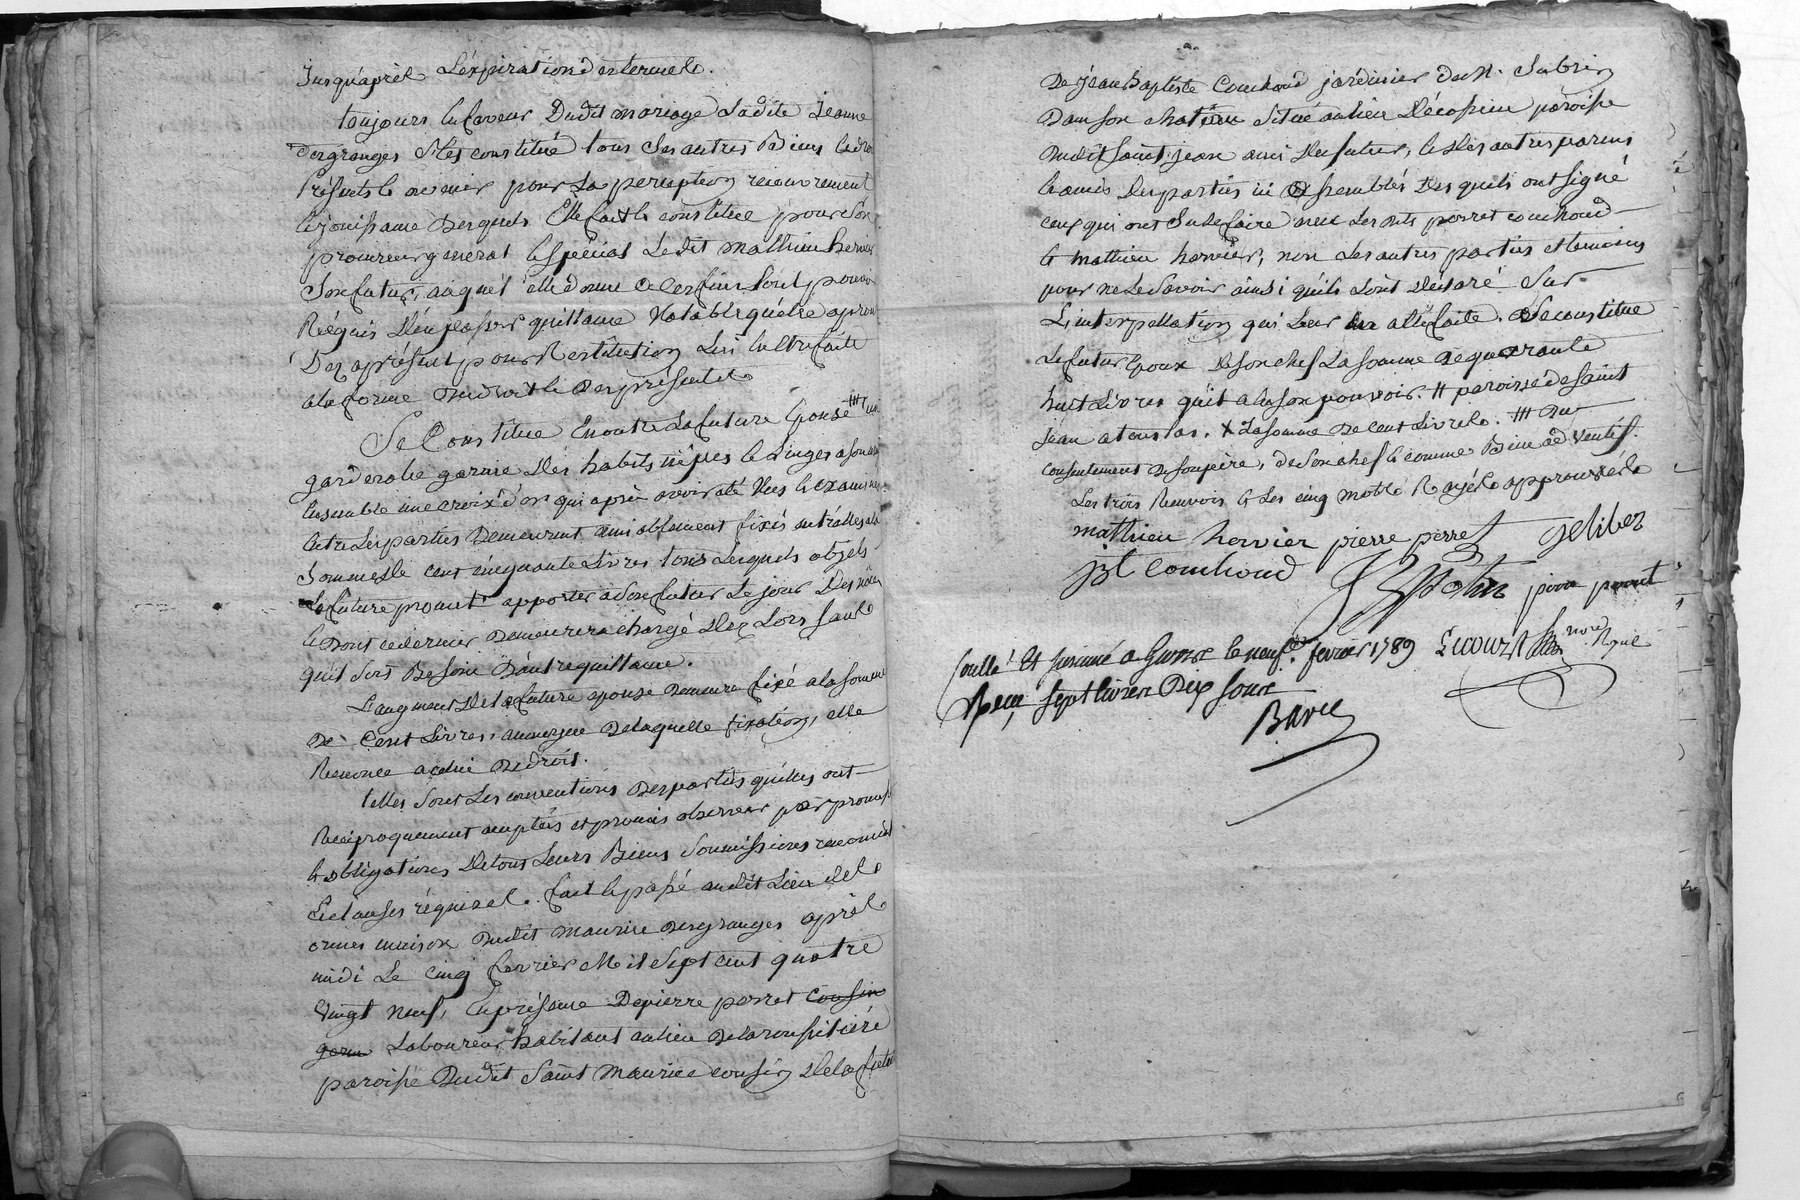 Jusqu'après L'éxpiration des termes.
toujours En faveur Dudit mariage Ladite Jeanne
Desgranges S'est constitué tous Ses autres Biens
présents & avenir pour La perception recouvrement
& jouissance Desquels Elle fait & constitue pour Son
procureur général & spécial Ledit mathieu hervier
Son futur, auquel elle donne a ces fins tout pouvoir
Réquis D'en passer quittance Valable quelle aprouve
Des aprésent pour Restitution Lui En Etre faite
ala forme Du droit & Des présentes
Se Constitue En outre La future Epouse ###
garderobe garnie Des habits nipes & Linges a son
Ensemble une croix d'or qui après avoir été Vus & examinés
Entre Les parties Demeurent amiablement fixés entr'elles ala
Somme De cent cinquante Livres tous Lesquels objets
La future promet apporter a Son futur Le jour Des nôces
& Dont ce dernier Demeurera chargé Des Lors Sans
qu'il soit Besoin D'autre quittance.
L'augment De la future epouse Demeure fixé ala somme
De Cent Livres, au moyen De laquelle fixation, elle
Renonce a celui De droit.
telles Sont Les conventions Des parties qu'elles ont
Réciproquement acceptées et promis observer par promesses
& obligations De tous Leurs Biens Soumissions renonciations
& clauses réquises. fait & passé audit Lieu des
ormes maison Dudit maurice Desgranges après
midi Le cinq fevrier Mil Sept cent quatre
Vingt neuf, En présence De pierre perret cousin
germ Laboureur habitant au lieu De la roussiliére
paroisse Dudit Saint maurice cousin De la future
De jean Baptiste Couchoud jardinier de M. Sabrin
Dans son chateau Situé au lieu D'écossieu paroisse
Dudit Saint jean ami Du futur, & Des autres parens
& amis Des parties ici assemblés Desquels ont signé
ceux qui ont Su Le faire avec Les Dits perret couchoud
& mathieu hervier, non Les autres parties et temoins
pour ne Le Savoir ainsi qu'ils L'ont Déclaré Sur
L'interpellation qui Leur en a été faite. Se constitue
Le futur Epoux De son chef La somme De quarante
huit Livres qu'il a En son pouvoir. # paroisse de Saint
jean a toustas. X La somme De cent Livres. ### Du
consentement De son père, de Son chef & comme Bien adventif.
Les trois Renvois & Les cinq mots Rayés approuvés
mathieu hervier pierre perret Geliber
JB Couchoud pour present
Conllé Et insinué a le neuf fevrier 1789
Reçu sept livres Dix sous